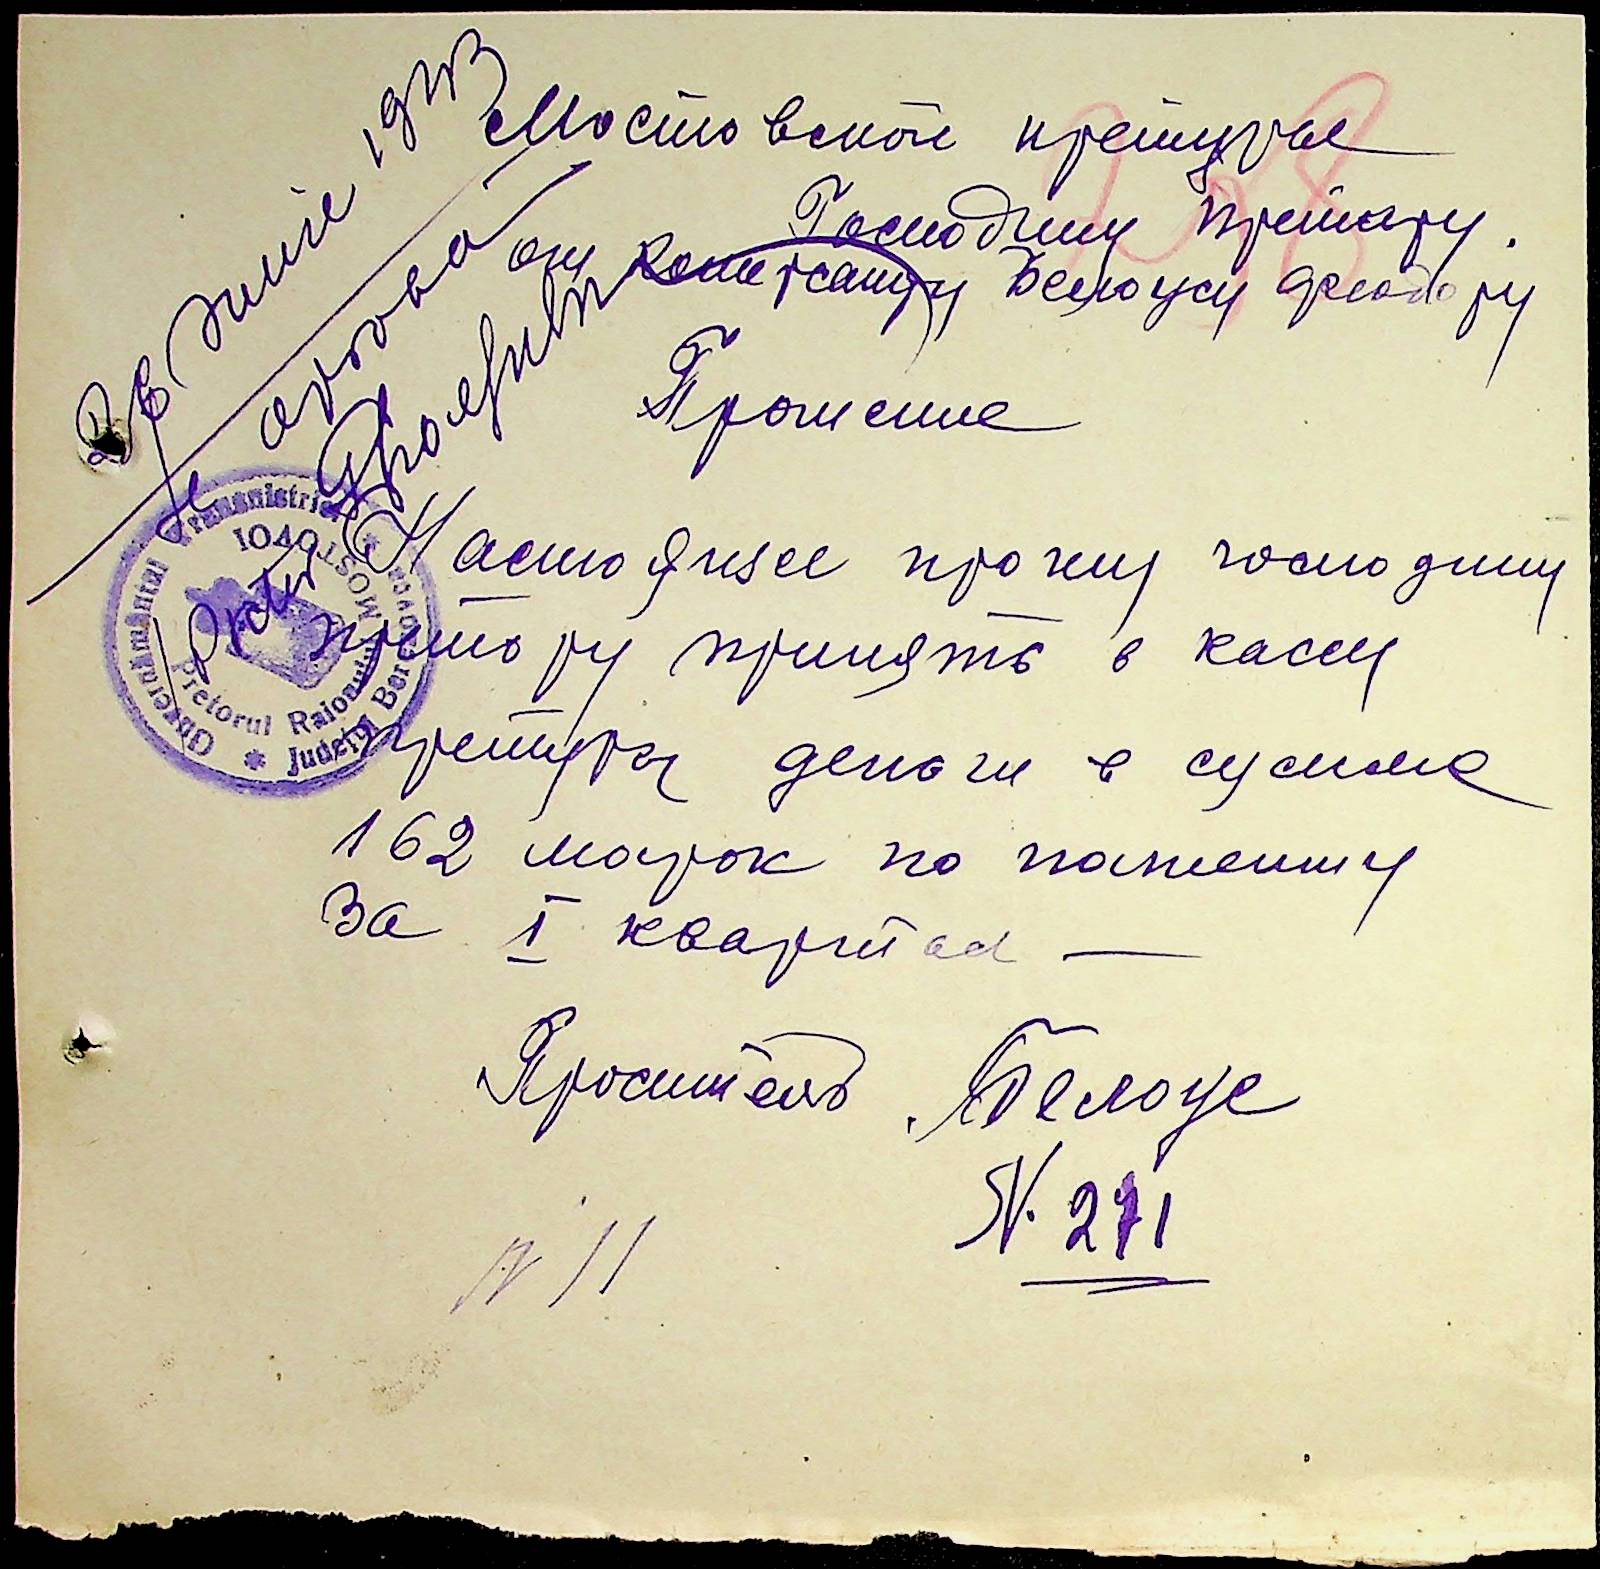 26 Iunie 1943
Se aprobă
Pretor
Guvernământul Transnistriei
Județul Berezovca
Pretorul Raionului MOSTOVOI
Мостовской претуре
Господину претору.
от Белоусу Федору
Прошение
Настоящее прошу господину
претору принять в кассу
претуры деньги в сумме
162 марок по патенту
За I квартал —
Проситель Белоус
N. 271
N 11